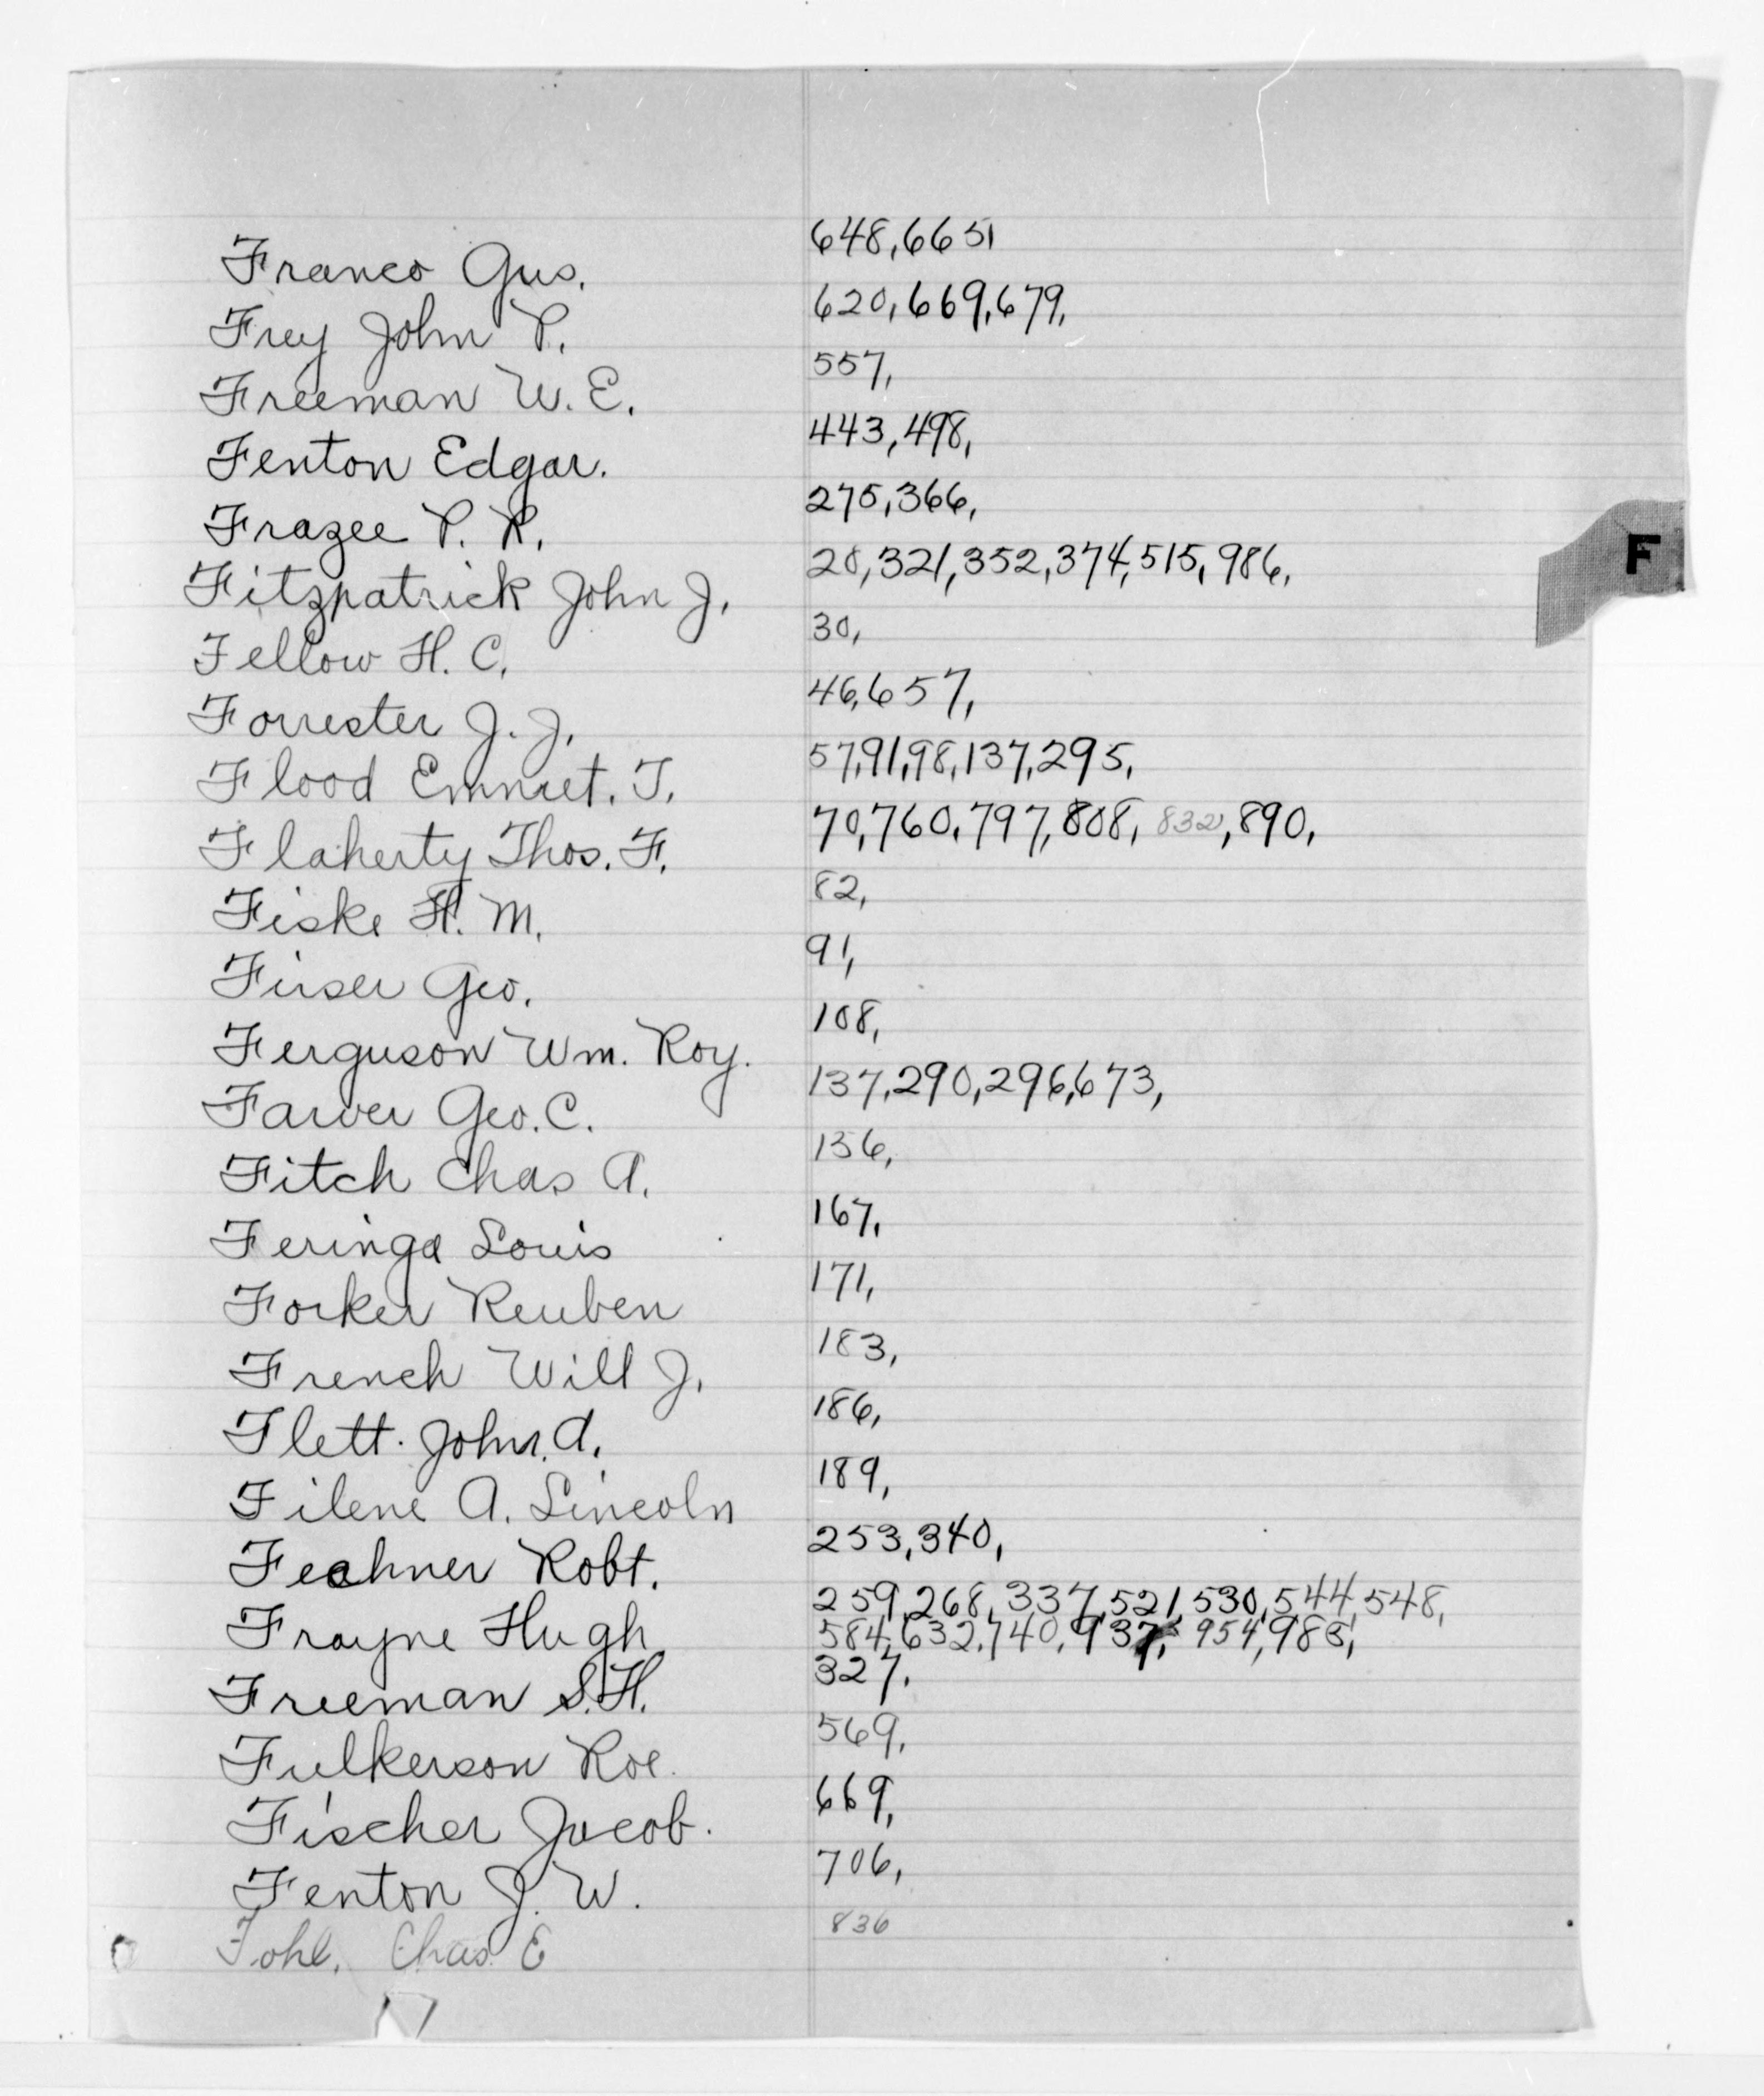 Franco Gus. 648,6651
Frey John P. 620,669,679,
Freeman W. E. 557,
Fenton Edgar. 443,498,
Frazee P. R. 275,366,
Fitzpatrick John J. 20,321,352,374,515,986,
F
Fellow H. C. 30,
Forrester J. J. 46,657,
Flood Emmet. T. 57,91,98,137,295,
Flaherty Thos. F. 70,760,797,808, 832,890,
Fiske H. M. 82,
Firser Geo. 91,
Ferguson Wm. Roy. 108,
Farver Geo. C. 137,290,296,673,
Fitch Chas A. 136,
Feringa Louis 167,
Forker Reuben 171,
French Will J. 183,
Flett. John. A. 186,
Filene A. Lincoln 189,
Fechner Robt. 253,340,
Frayne Hugh 259,268,337,521,530,544,548,
584,632,740,937, 954,983,
Freeman S.H. 327,
Fulkerson Roe. 569,
Fischer Jacob. 669,
Fenton J. W. 706,
Fohl, Chas. E 836